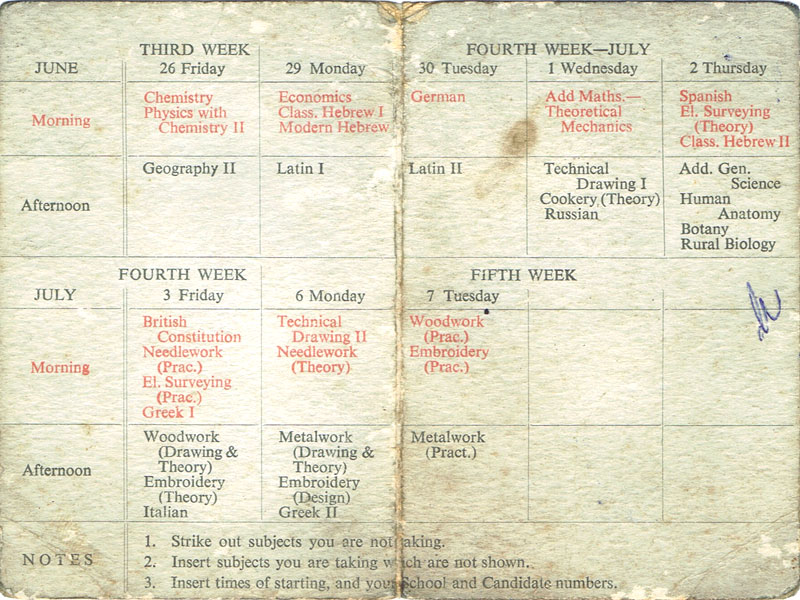 THIRD WEEK FOURTH WEEK—JULY
JUNE 26 Friday 29 Monday 30 Tuesday 1 Wednesday 2 Thursday
Morning
Chemistry
Physics with
Chemistry II
Economics
Class. Hebrew I
Modern Hebrew
German
Add Maths.—
Theoretical
Mechanics
Spanish
El. Surveying
(Theory)
Class. Hebrew II
Afternoon
Geography II
Latin I
Latin II
Technical
Drawing I
Cookery (Theory)
Russian
Add. Gen.
Science
Human
Anatomy
Botany
Rural Biology
FOURTH WEEK FIFTH WEEK
JULY 3 Friday 6 Monday 7 Tuesday
Morning
British
Constitution
Needlework
(Prac.)
El. Surveying
(Prac.)
Greek I
Technical
Drawing II
Needlework
(Theory)
Woodwork
(Prac.)
Embroidery
(Prac.)
Afternoon
Woodwork
(Drawing &
Theory)
Embroidery
(Theory)
Italian
Metalwork
(Drawing &
Theory)
Embroidery
(Design)
Greek II
Metalwork
(Pract.)
NOTES
1. Strike out subjects you are not taking.
2. Insert subjects you are taking which are not shown.
3. Insert times of starting, and your School and Candidate numbers.